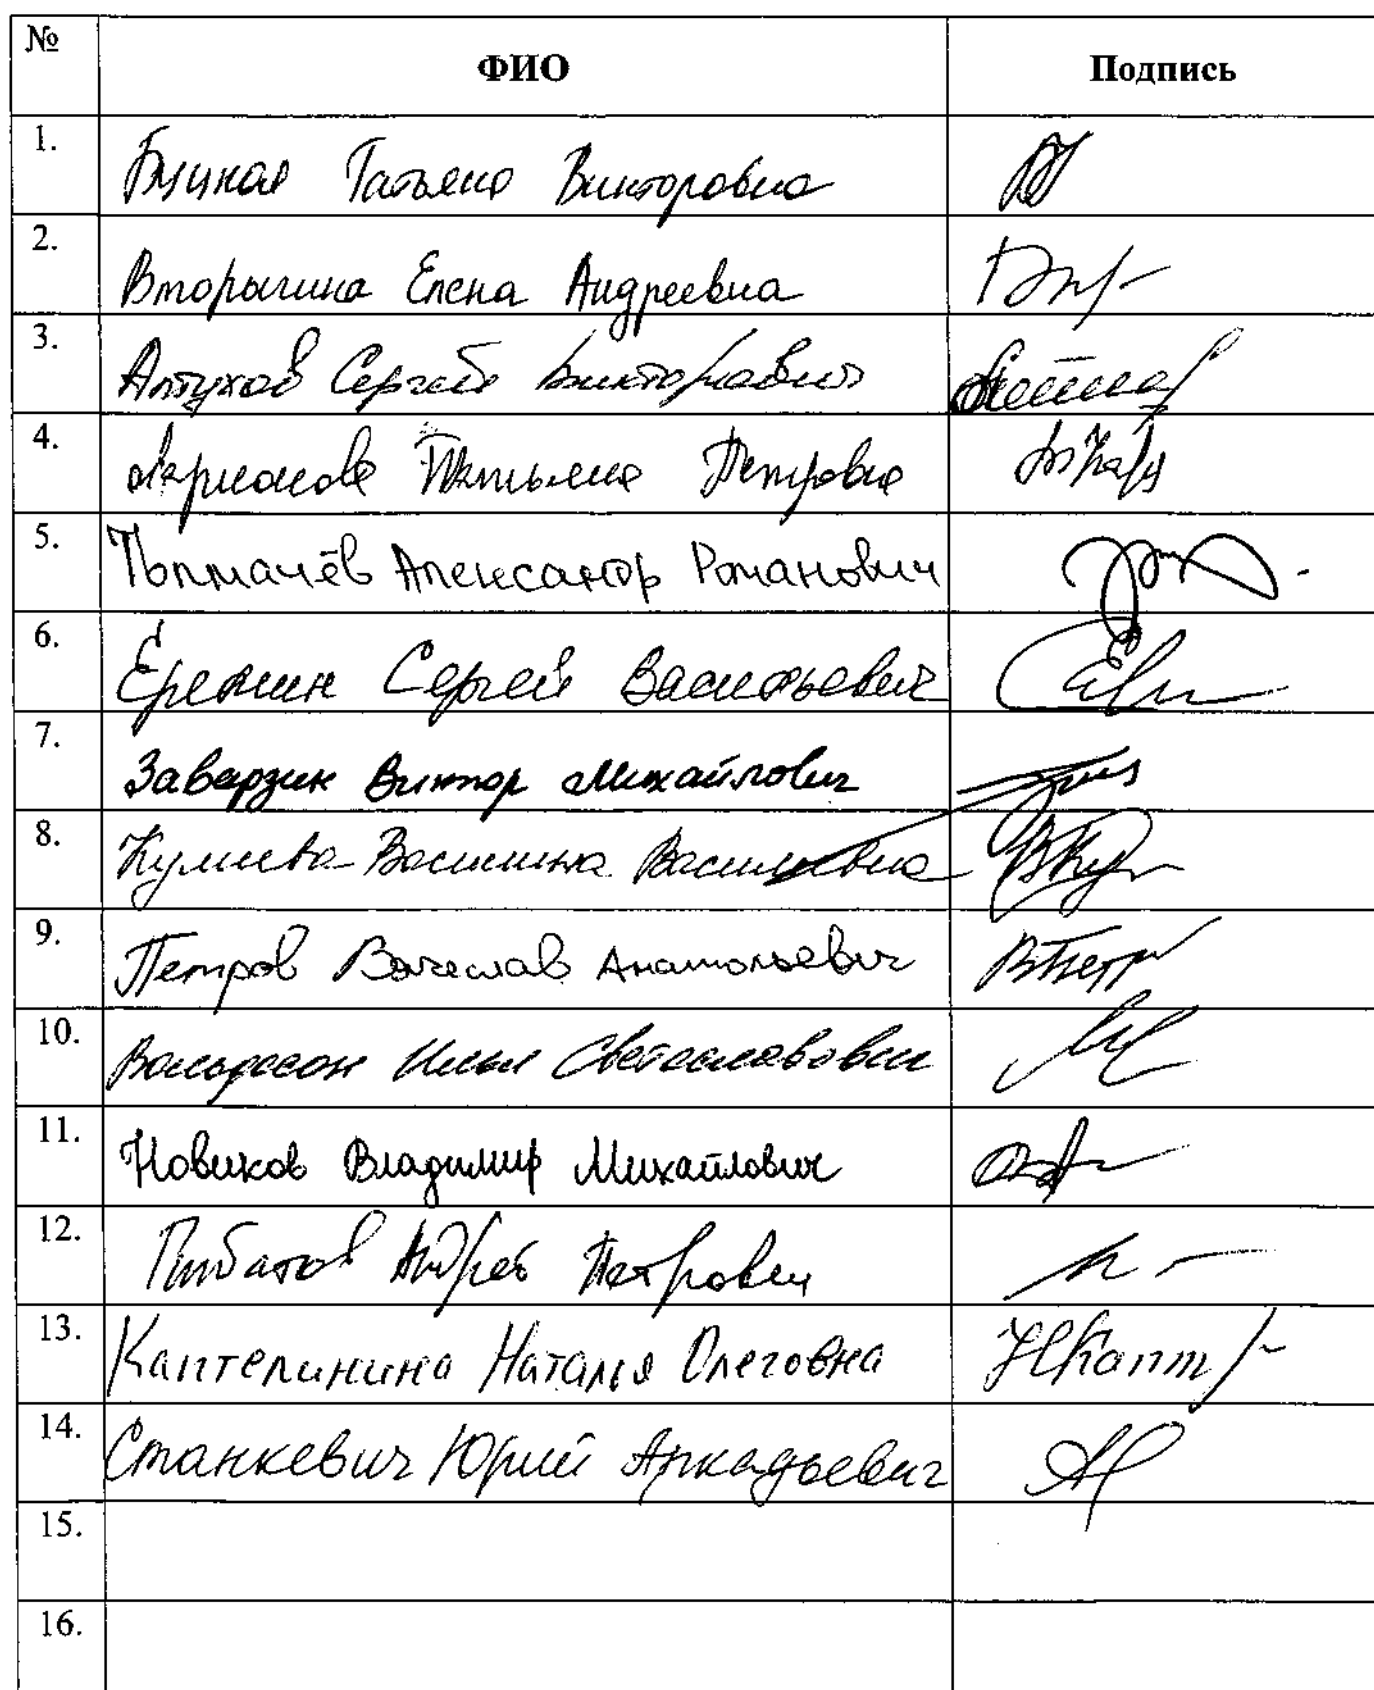 № ФИО Подпись
1. Буцкая Татьяна Викторовна
2. Вторыгина Елена Андреевна
3. Алтухов Сергей Викторович
4. Ларионова Татьяна Петровна
5. Толмачёв Александр Романович
6. Еремин Сергей Васильевич
7. Заварзин Виктор Михайлович
8. Кулиева Василина Васильевна
9. Петров Вячеслав Анатольевич
10. Вольфсон Илья Светославович
11. Новиков Владимир Михайлович
12. Андрей Петрович
13. Каптелинина Наталья Олеговна
14. Станкевич Юрий Аркадьевич
15.
16.